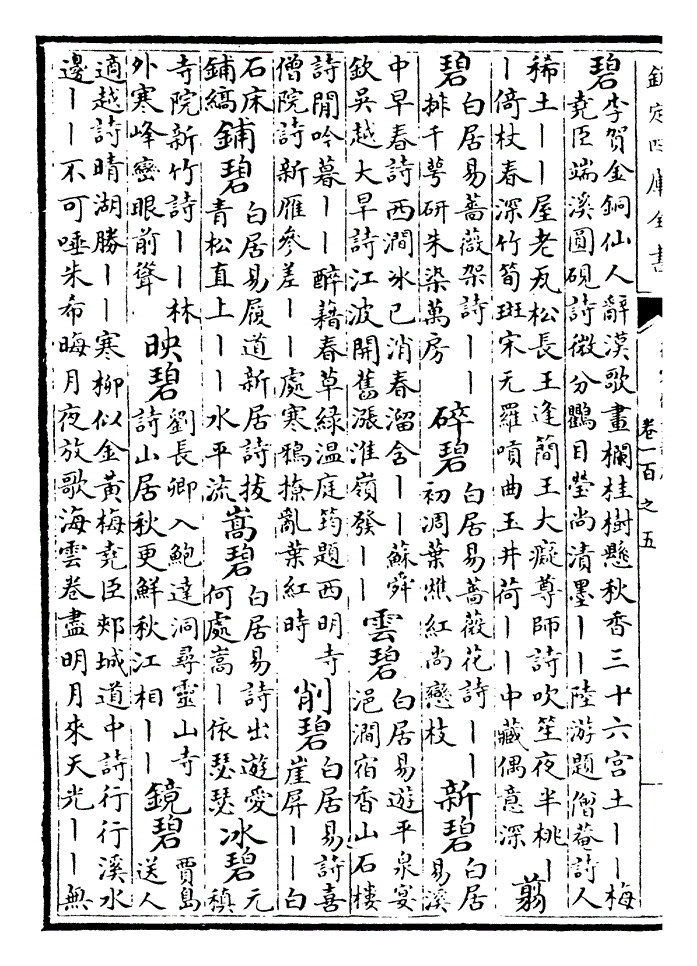 欽定四庫全書
卷一百之五
碧李賀金銅仙人辭漢歌畫欄桂樹懸秋香三十六宮土丨丨梅
堯臣端溪圓硯詩微分鸜目瑩尚漬墨丨丨陸游題僧菴詩人
稀土丨丨屋老瓦松長王逢簡王大癡尊師詩吹笙夜半桃丨
丨倚杖春深竹筍斑宋无羅嗊曲玉井荷丨丨中藏偶意深翦
碧白居易薔薇架詩丨丨
排千萼研朱染萬房
碎碧白居易薔薇花詩丨丨
初凋葉燋紅尚戀枝
新碧白居
易溪
中早春詩西澗冰已消春溜含丨丨蘇舜
欽吳越大旱詩江波開舊漲淮嶺發丨丨
雲碧白居易遊平泉宴
浥澗宿香山石樓
詩閒吟暮丨丨醉藉春草綠溫庭筠題西明寺
僧院詩新雁參差丨丨處寒鴉撩亂葉紅時
削碧白居易詩喜
崖屏丨丨白
石床
鋪縞
鋪碧白居易履道新居詩拔
青松直上丨丨水平流
嵩碧白居易詩出遊愛
何處嵩丨依瑟瑟
冰碧元
稹
寺院新竹詩丨丨林
外寒峰巒眼前聳
映碧劉長卿入鮑達洞尋靈山寺
詩山居秋更鮮秋江相丨丨
鏡碧賈島
送人
適越詩晴湖勝丨丨寒柳似金黃梅堯臣郟城道中詩行行溪水
邊丨丨不可唾朱希晦月夜放歌海雲卷盡明月來天光丨丨無